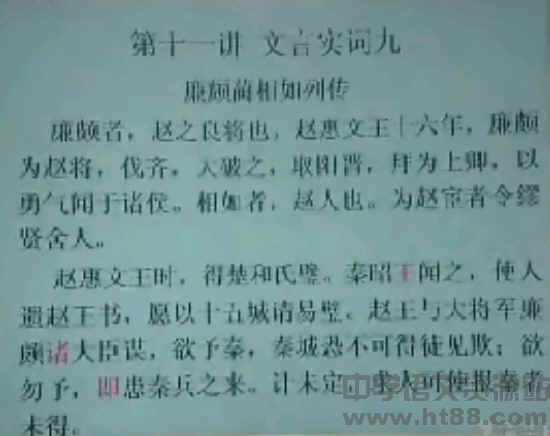 第十一讲 文言实词九
廉颇蔺相如列传
廉颇者，赵之良将也。赵惠文王十六年，廉颇
为赵将，伐齐，大破之，取阳晋，拜为上卿，以
勇气闻于诸侯。相如者，赵人也。为赵宦者令缪
贤舍人。
赵惠文王时，得楚和氏璧。秦昭王闻之，使人
遗赵王书，愿以十五城请易璧。赵王与大将军廉
颇诸大臣谋，欲予秦，秦城恐不可得徒见欺；欲
勿予，即患秦兵之来。计未定，求人可使报秦者
未得。
中学语文资源站
www.ht88.com